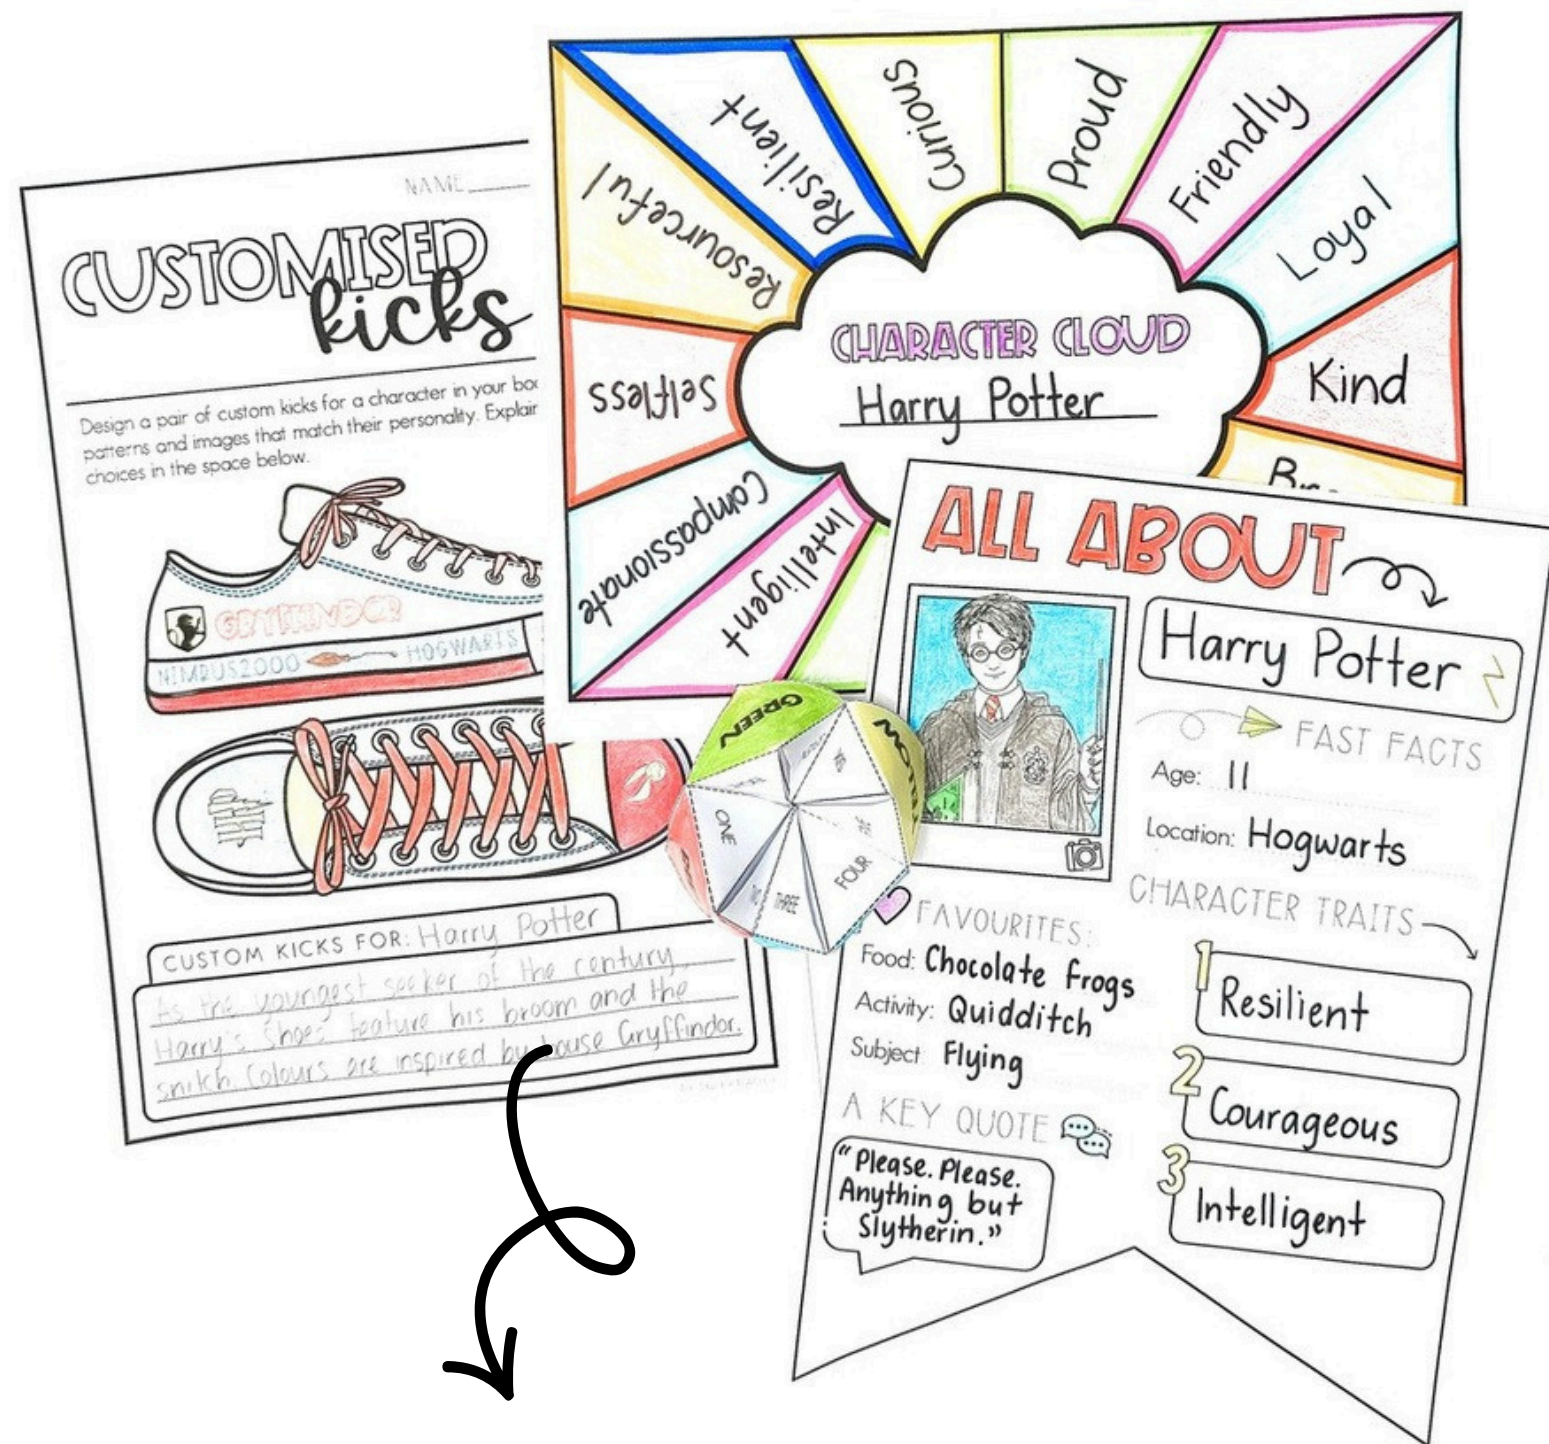 NAME
CUSTOMISED
kicks
Design a pair of custom kicks for a character in your bo
patterns and images that match their personality. Explain
choices in the space below.
GRYFFINDOR
NIMBUS2000
HOGWARTS
CUSTOM KICKS FOR: Harry Potter
As the youngest seeker of the century,
Harry's shoes feature his broom and the
snitch. Colours are inspired by house Gryffindor.
Resourceful
Resilient
Curious
Proud
Friendly
Loyal
Kind
Selfless
Compassionate
Intelligent
CHARACTER CLOUD
Harry Potter
GREEN
YELLOW
ONE
TWO
THREE
FOUR
FIVE
ALL ABOUT
Harry Potter
FAST FACTS
Age: 11
Location: Hogwarts
CHARACTER TRAITS
1 Resilient
2 Courageous
3 Intelligent
FAVOURITES:
Food: Chocolate frogs
Activity: Quidditch
Subject: Flying
A KEY QUOTE
"Please. Please.
Anything but
Slytherin."